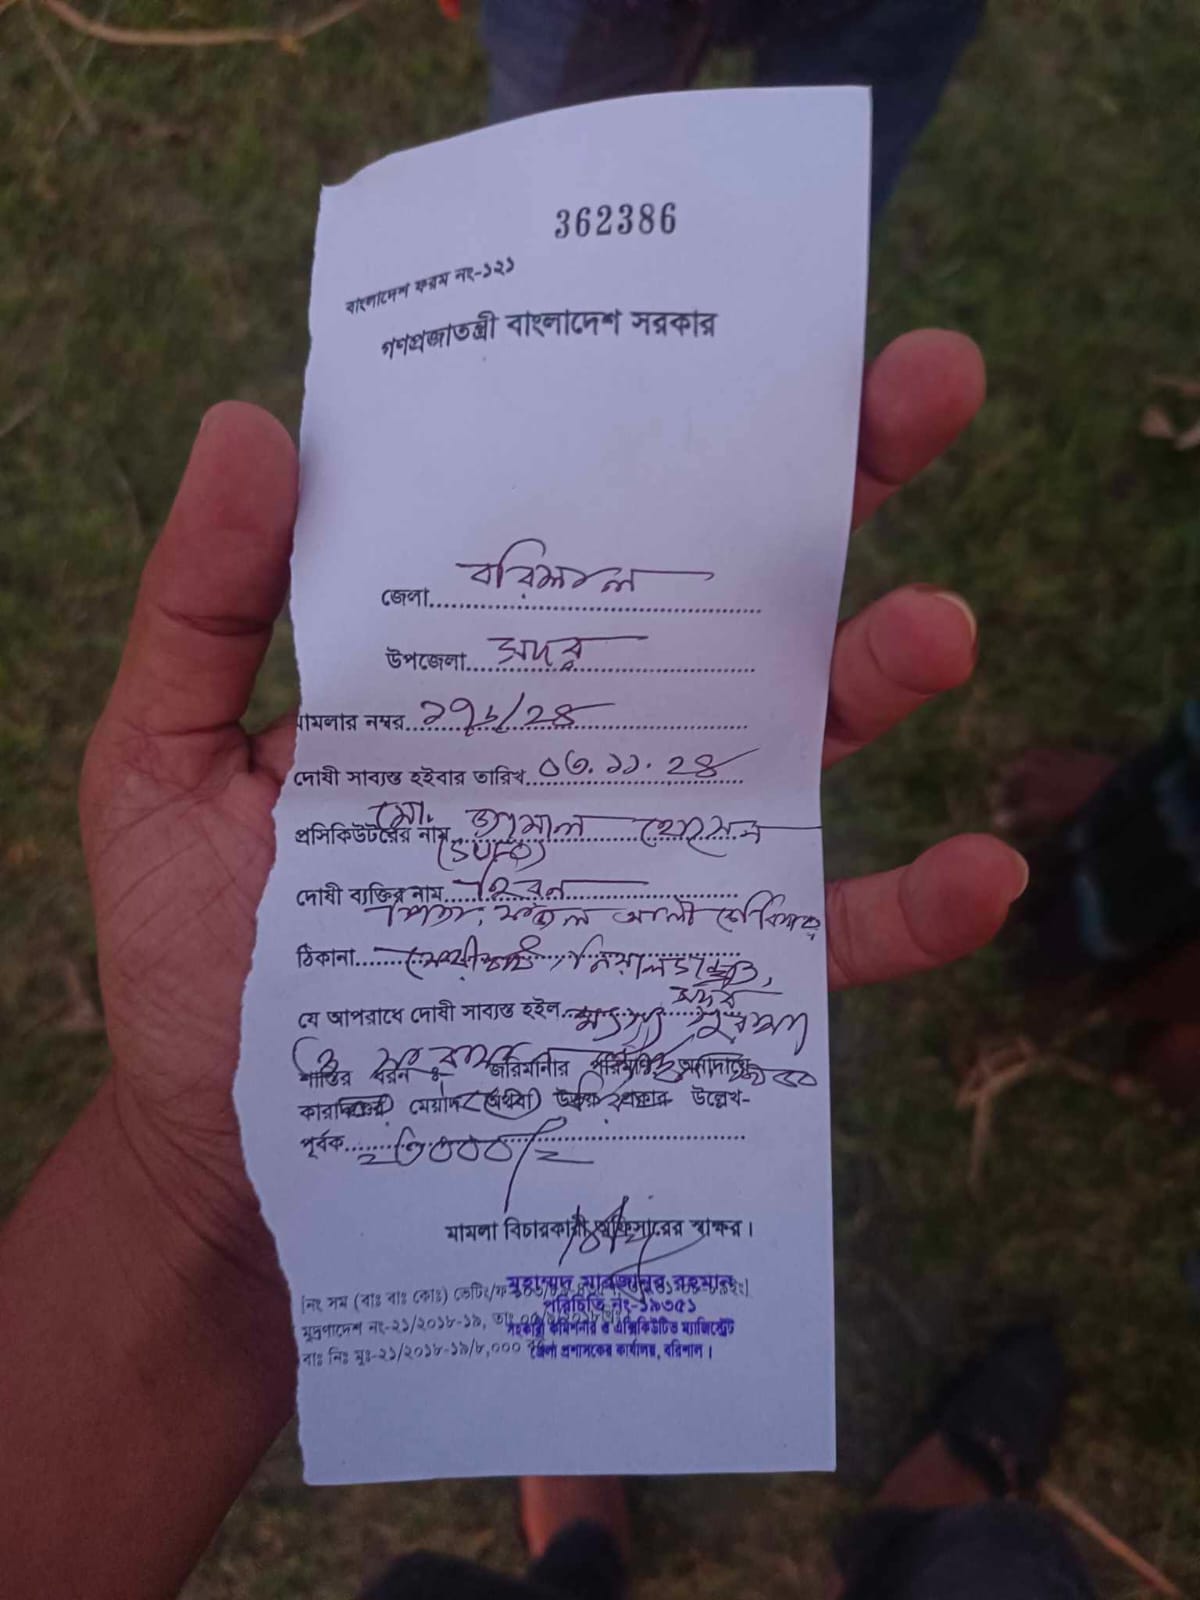 362386
বাংলাদেশ ফরম নং-১২১
গণপ্রজাতন্ত্রী বাংলাদেশ সরকার
জেলা বরিশাল
উপজেলা সদর
মামলার নম্বর ১৭৮/২৪
দোষী সাব্যস্ত হইবার তারিখ ০৩.১১.২৪
প্রসিকিউটরের নাম মো. জামাল হোসেন
(SUFO)
দোষী ব্যক্তির নাম হিরন
পিতা:
ঠিকানা
সদর
যে অপরাধে দোষী সাব্যস্ত হইল মৎস্য সুরক্ষা
ও সংরক্ষণ
শাস্তির ধরন ঃ জরিমানার পরিমাণ অনাদায়ে
কারাদণ্ডের মেয়াদ (অথবা) উভয় প্রকার উল্লেখ-
পূর্বক ৩০০০/=
মামলা বিচারকারী অফিসারের স্বাক্ষর।
মুহাম্মদ মাহফুজুর রহমান
পরিচিতি নং-১৯৩৫১
সহকারী কমিশনার ও এক্সিকিউটিভ ম্যাজিস্ট্রেট
জেলা প্রশাসকের কার্যালয়, বরিশাল।
[নং সম (বাঃ বাঃ কোঃ) ভেটিং/ফ
মুদ্রণাদেশ নং-২১/২০১৮-১৯, তাং
বাঃ নিঃ মুঃ-২১/২০১৮-১৯/৮,০০০